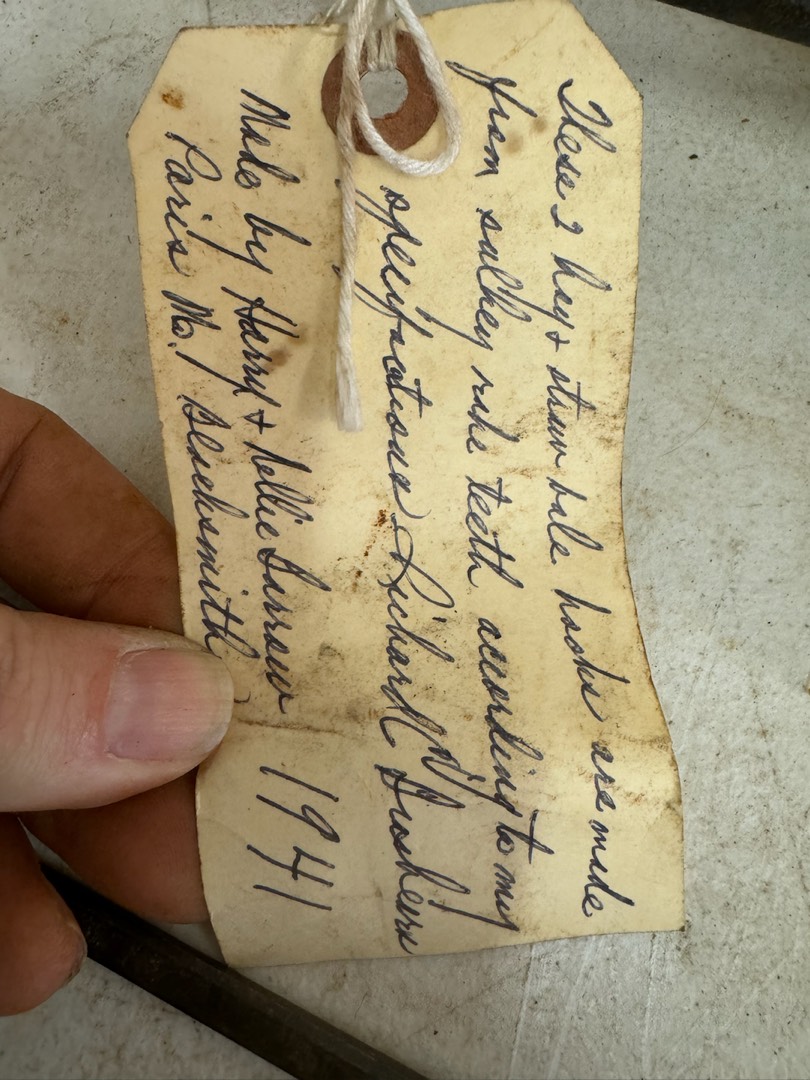 These 2 hay & straw bale hooks are made
from sulkey rake teeth according to my
specifications Richard D. Brashears
Made by Harry & Nellie Barrow 1941
Paris Mo. Blacksmith